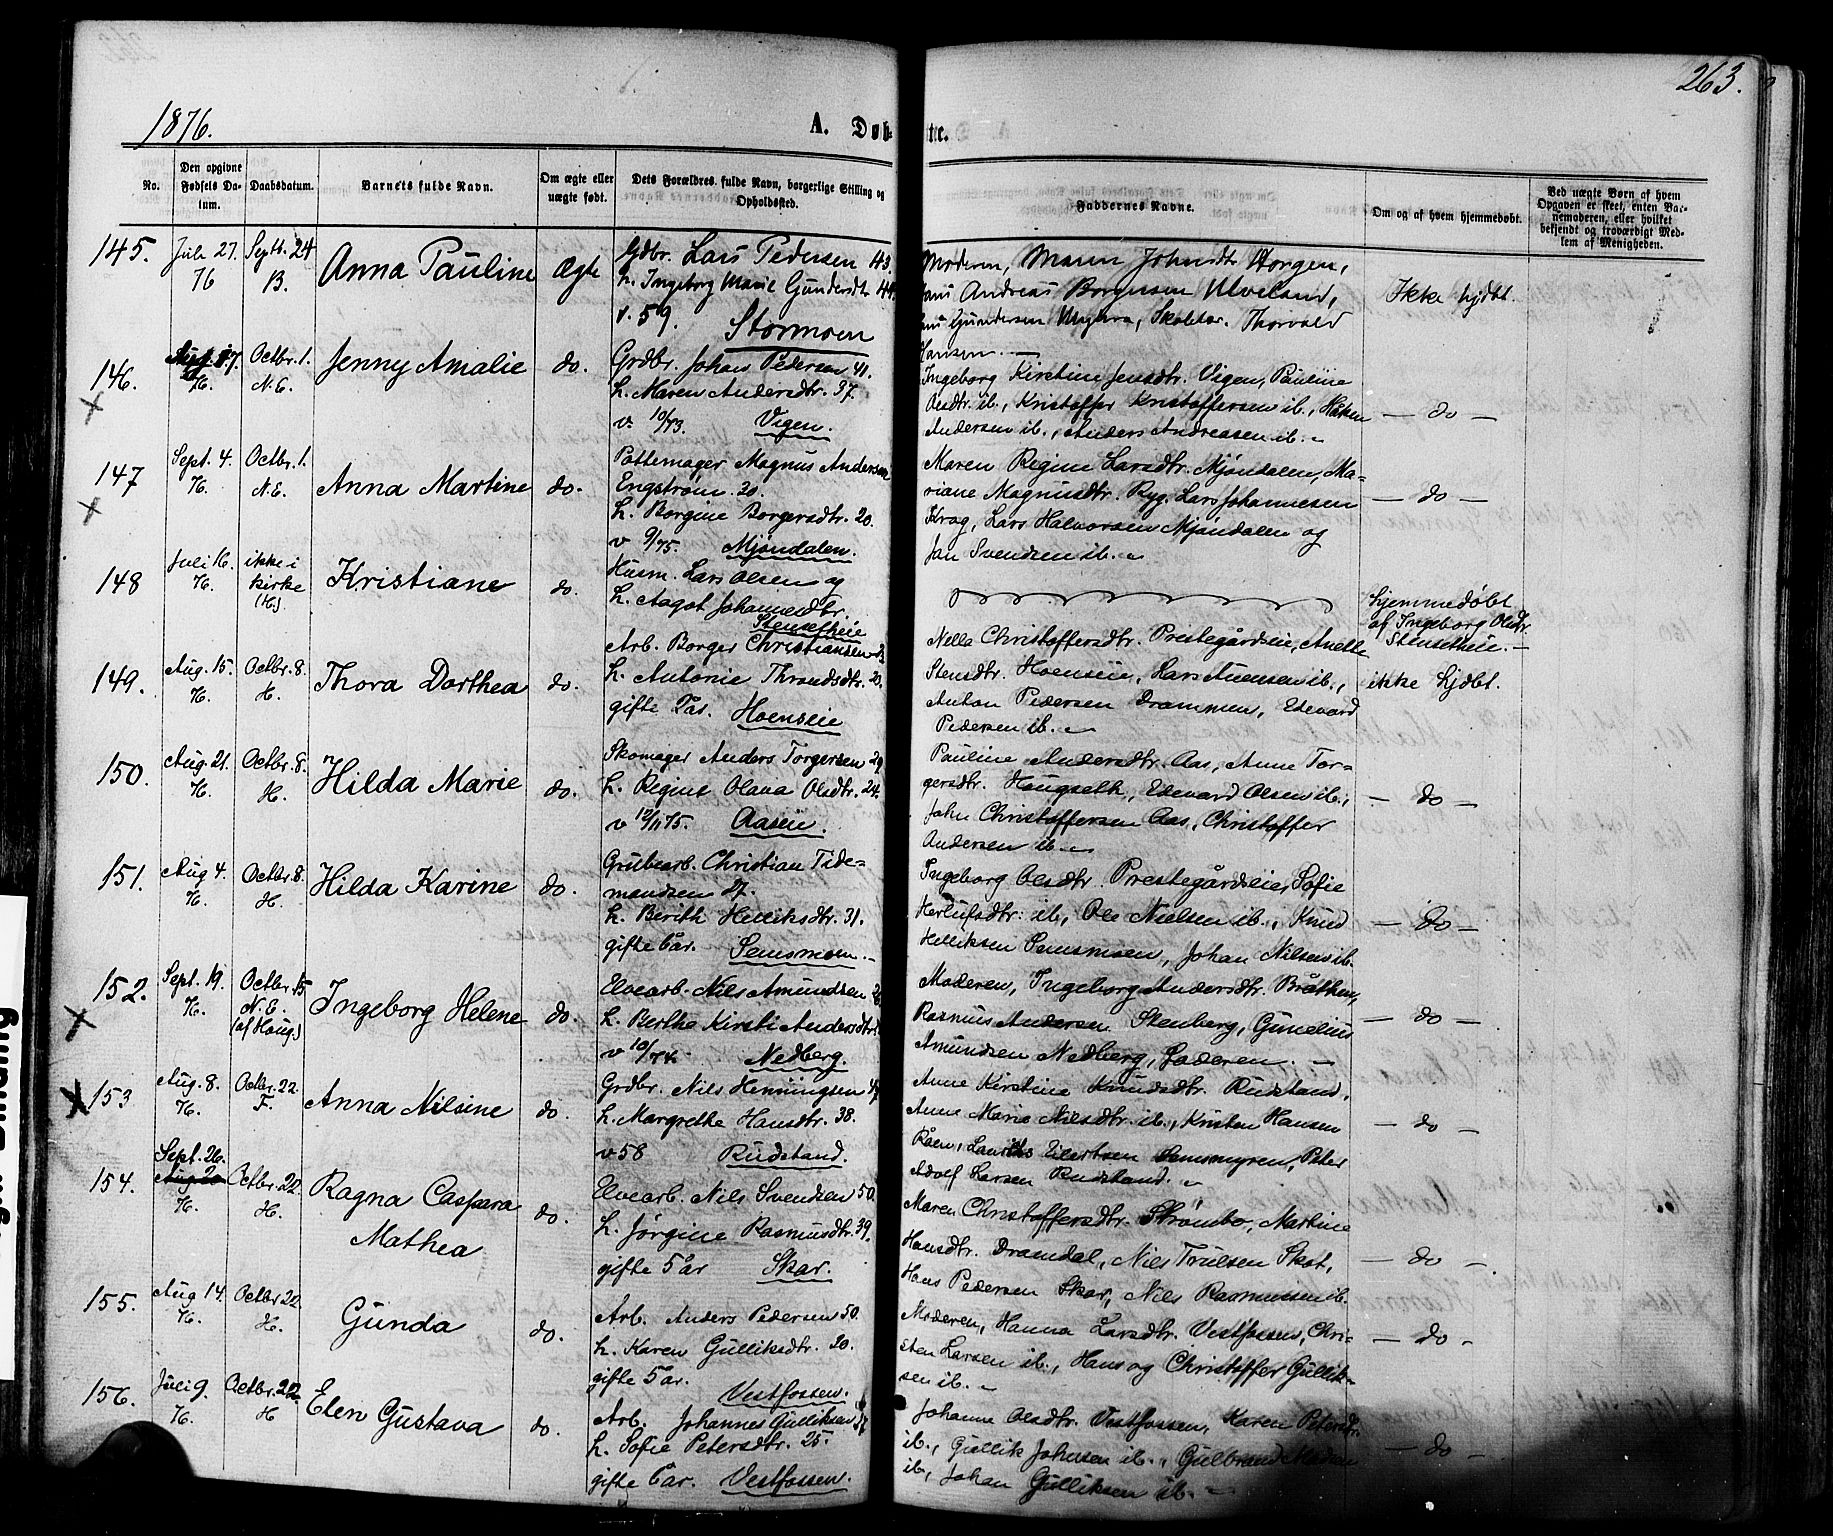 263.
1876.
A. Døb-
te.
No.
Den opgivne Fødsels Datum.
Daabsdatum.
Barnets fulde Navn.
Om ægte eller uægte født.
Dets Forældres fulde Navn, borgerlige Stilling og Opholdssted.
Faddernes Navne.
Om og af hvem hjemmedøbt.
Ved uægte Børn af hvem Opgaven er skeet, enten Barnemoderen, eller hvilket bekjendt og troværdigt Medlem af Menigheden.
145. Juli 27. Septb. 24 Anna Pauline Ægte
H. B.
Gdbr. Lars Pedersen 43.
h. Ingeborg Marie Gundersdtr. 44.
v. 59. Stormoen
Moderen, Maren Johnsdtr. Horgen,
Andreas Borgersen Ulveland,
Gundersen Skoletar. Thorvald
Hansen. —
Ikke hjdbt.
146. 17. Octbr. 1. Jenny Amalie do.
H. N.E.
Grdbr. Johan Pedersen 41.
h. Maren Andersdtr. 37.
v. 10/73. Vigen.
Ingeborg Kirstine Jensdtr. Vigen, Pauline
Olsdtr. ib., Kristoffer Kristoffersen ib., Håken
Andersen ib., Anders Andreasen ib. –
— do —
147 Sept. 4. Octbr. 1. Anna Martine do.
H. N.E.
Pottemager Magnus Andersen
Engstrøm 30.
h. Borgine Borgersdtr. 20.
v 9/75. Mjøndalen.
Maren Regine Larsdtr. Mjøndalen, Ma-
riane Magnusdtr. Ryg. Lars Johannesen
Krog, Lars Halvorsen Mjøndalen og
Jan Svendsen ib. –
— do —
148 Juli 16. ikke i kirke (H.) Kristiane do.
H.
Husm. Lars Olsen og
h. Aagot Johannesdtr.
Stensetheie
hjemmedøbt
af Ingeborg Olsdtr.
Stensetheie. —
149. Aug. 15. Octbr. 8. Thora Dorthea do.
H. H.
Arb. Borger Christiansen
h. Antonie Throndsdtr. 20.
gifte 2 år. Hoenseie
Nella Christoffersdtr. Prestegårdseie, Anette
Stensdtr. Hoenseie, Lars Auensen ib.,
Anton Pedersen Drammen, Edevard
Pedersen ib. –
ikke hjdbt.
150. Aug. 21. Octbr. 8. Hilda Marie do.
H. H.
Skomager Anders Torgersen 29.
h. Regine Olava Olsdtr. 24.
v 12/11 75. Aaseie.
Pauline Andersdtr. Aas, Anne Tor-
gersdtr. Hougseth, Edevard Olsen ib.,
John Christoffersen Aas, Christoffer
Andersen ib. –
— do —
151. Aug 4. Octbr. 8. Hilda Karine do.
H. H.
Grubearb. Christian Tide-
mandsen 27.
h. Berith Helliksdtr. 31.
gifte 6 år. Semsmoen. –
Ingeborg Olsdtr. Prestegårdseie, Sofie
Herlufsdtr. ib, Ole Nielsen ib., Knud
Helliksen Semsmoen, Johan Nilsen ib.
— do —
152. Sept. 19. Octbr. 15 Ingeborg Helene do.
H. N.E. (af Haug)
Elvearb. Nils Amundsen
h. Berthe Kirsti Andersdtr.
v 10/74. Nedberg.
Moderen, Ingeborg Andersdtr. Bråthen,
Rasmus Andersen Stenberg, Gunelius
Amundsen Nedberg, Faderen. —
— do —
153 Aug. 8. Octbr. 22. Anna Nilsine do.
H. F.
Grdbr. Nils Henningsen
h. Margrethe Hansdtr. 38.
v 58 Rudstand.
Anne Kirstine Knudsdtr. Rudstand,
Anne Marie Nilsdtr. ib., Kristen Hansen
Råen, Laurits Eilertsen Semsmyren, Peter
Adolf Larsen Rudstand. –
— do —
154. Sept. 26. Octbr. 22. Ragna Caspara
H. H. Mathea do.
Elvearb. Nils Svendsen 50.
h. Jørgine Rasmusdtr. 39.
gifte 5 år Skar.
Maren Christoffersdtr. Strømbo, Martine
Hansdtr. Dramdal, Nils Trulsen Skot,
Hans Pedersen Skar, Nils Rasmussen ib.
— do —
155. Aug 14. Octbr 22. Gunda do.
H. H.
Arb. Anders Pedersen 50.
h. Karen Gulliksdtr. 20.
gifte 5 år. Vestfossen.
Moderen, Hanna Larsdtr. Vestfossen, Chri-
sten Larsen ib., Hans og Christoffer Gullik-
sen ib. –
— do —
156. Juli 9. Octbr. 22. Elen Gustava do.
H. H
Arb. Johannes Gulliksen
h. Sofie Petersdtr. 25.
gifte 6 år. Vestfossen.
Johanne Olsdtr. Vestfossen, Karen Petersdtr.
ib., Gullik Johnsen ib., Gulbrand Madsen
ib., Johan Gulliksen ib. –
— do —